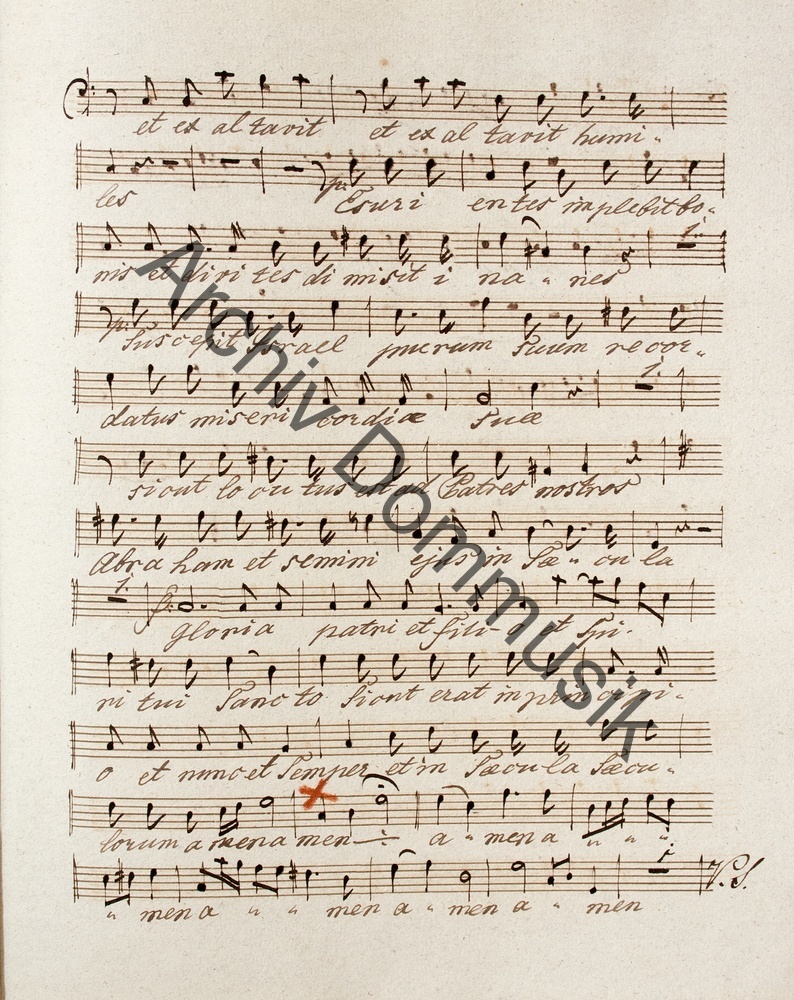 et ex altavit et ex altavit humi-
les p: Esuri entes implebit bo-
nis et divi tes di misit i na - nes 1.
p: Suscepit Israel puerum suum recor-
datus miseri cordiæ suæ 1.
sicut locu tus est ad Patres nostros
Abra ham et semini ejus in sæ - cu la
1. f: Gloria patri et fili - o et Spi-
ri tui Sancto Sicut erat in principi-
o et nunc et Semper et in Sæcula Sæcu-
lorum amen a men a - men a
- men a - - men a - men a - men V.S.
Archiv Dommusik